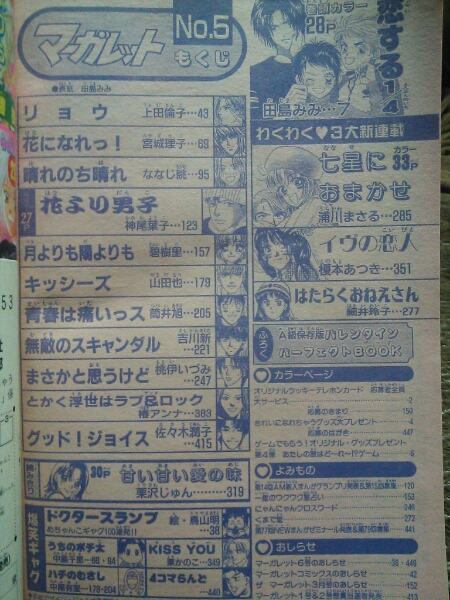 マーガレット
No.5
もくじ
●表紙 田島みみ
リョウ 上田倫子…43
花になれっ! 宮城理子…69
晴れのち晴れ ななじ眺…95
27P 花より男子 神尾葉子…123
月よりも陽よりも 碧樹里…157
キッシーズ 山田也…179
青春は痛いっス 筒井旭…205
無敵のスキャンダル 吉川新…221
まさかと思うけど 桃伊いづみ…247
とかく浮世はラブ&ロック 椿アンナ…383
グッド!ジョイス 佐々木潤子…415
読みきり 30P 甘い甘い愛の味 栗沢じゅん………319
爆笑ギャグ
ドクタースランプ 絵・鳥山明…38
めちゃんこギャグ100連発!!
うちのポチ太
KISS YOU 巣かのこ…349
ハチのむさし 中島有里…178・204
4コマらんど…440
巻頭カラー 28P
恋する1/4
田島みみ…7
わくわく♥3大新連載
七星におまかせ カラー33P
浦川まさる…285
イヴの恋人
榎本あつき…351
はたらくおねえさん
細井玲子…277
ふろく A級保存版バレンタインパーフェクトBOOK
カラーページ
オリジナルラッキーテレホンカード 応募者全員大サービス…2
応募のきまり…150
きれいになれちゃうグッズ大プレゼント…4
応募のはがき…447
ゲームでもらう!オリジナル・グッズプレゼント
第4弾 あたしの旅はどーれ!?ゲーム…6
よみもの
一星のワクワク星占い…153
にゃんにゃんクロスワード…246
くまで塾…272
おしらせ
マーガレット6号のおしらせ…38・449
マーガレットコミックスのおしらせ…42
ザ マーガレット3月号のおしらせ…152